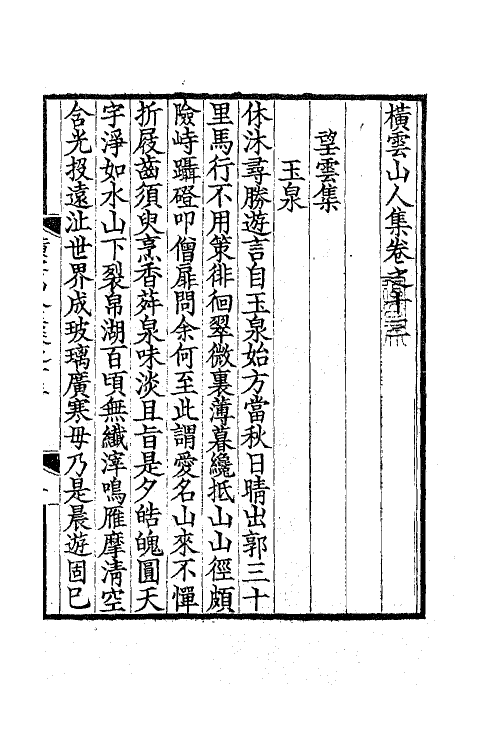 橫雲山人集卷之十三
望雲集
玉泉
休沐尋勝遊言自玉泉始方當秋日晴出郭三十
里馬行不用策徘徊翠微裏薄暮纔抵山山徑頗
險峙躡磴叩僧扉問余何至此謂愛名山來不憚
折屐齒須臾烹香荈泉味淡且旨是夕皓魄圓天
宇淨如水山下裂帛湖百頃無纖滓鳴雁摩清空
含光投遠沚世界成玻璃廣寒毋乃是晨遊固已